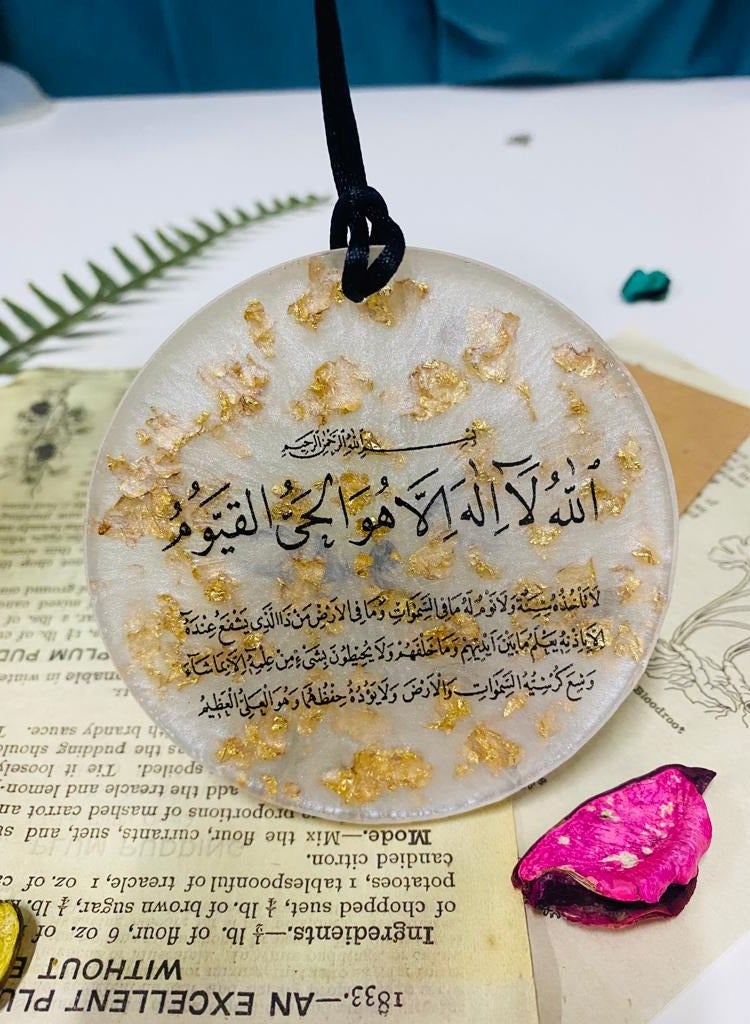 بسم الله الرحمن الرحيم
ٱللّٰهُ لَا اِلٰهَ اِلَّا هُوَ الْحَيُّ الْقَيُّومُ
لَا تَأْخُذُهُ سِنَةٌ وَلَا نَوْمٌ لَهُ مَا فِي السَّمٰوَاتِ وَمَا فِي الْاَرْضِ مَنْ ذَا الَّذِي يَشْفَعُ عِنْدَهُ
اِلَّا بِاِذْنِهِ يَعْلَمُ مَا بَيْنَ اَيْدِيهِمْ وَمَا خَلْفَهُمْ وَلَا يُحِيطُونَ بِشَيْءٍ مِنْ عِلْمِهِ اِلَّا بِمَا شَاءَ
وَسِعَ كُرْسِيُّهُ السَّمٰوَاتِ وَالْاَرْضَ وَلَا يَؤُدُهُ حِفْظُهُمَا وَهُوَ الْعَلِيُّ الْعَظِيمُ
Bloodroot
1833.—AN EXCELLENT PLU
WITHOUT E
Ingredients.—½ lb. of flour, 6 oz. of
of chopped suet, ¼ lb. of brown sugar, ¼ lb.
potatoes, 1 tablespoonful of treacle, 1 oz. of ca
candied citron.
Mode.—Mix the flour, currants, suet, and su
proportions of mashed carrot an
add the treacle and lemon-
spoiled. Tie it loosely
as the pudding should
with brandy sauce.
winter
PLUM PUD